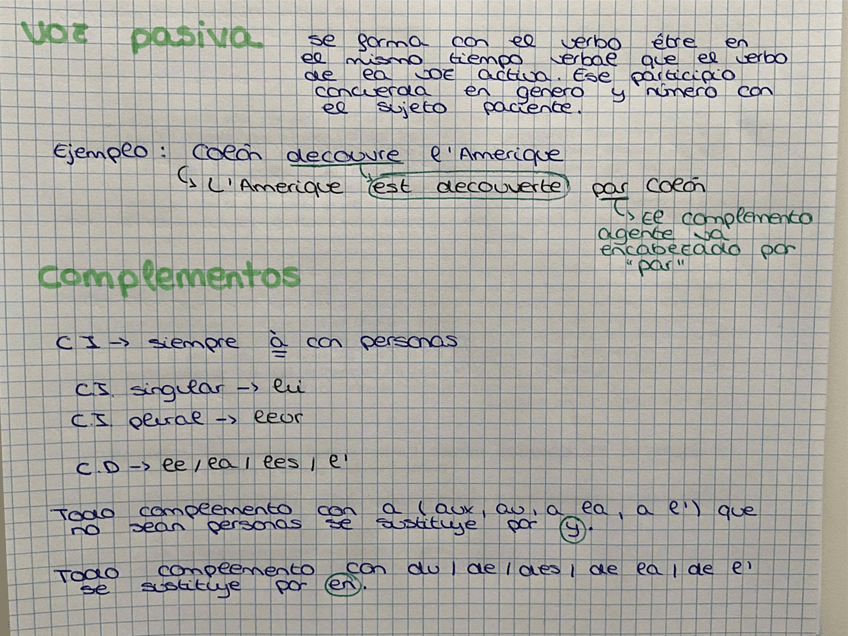 voz pasiva
se forma con el verbo être en
el mismo tiempo verbal que el verbo
de la voz activa. Ese participio
concuerda en género y número con
el sujeto paciente.
Ejemplo: Colón decouvre l'Amerique
↳ L'Amerique est decouverte par Colón
↳ El complemento
agente va
encabezado por
"par"
complementos
C I → siempre à con personas
C.I. singular → lui
C.I. plural → leur
C.D → le / la / les / l'
Todo complemento con a (aux, au, a la, a l') que
no sean personas se sustituye por y.
Todo complemento con du / de / des / de la / de l'
se sustituye por en.